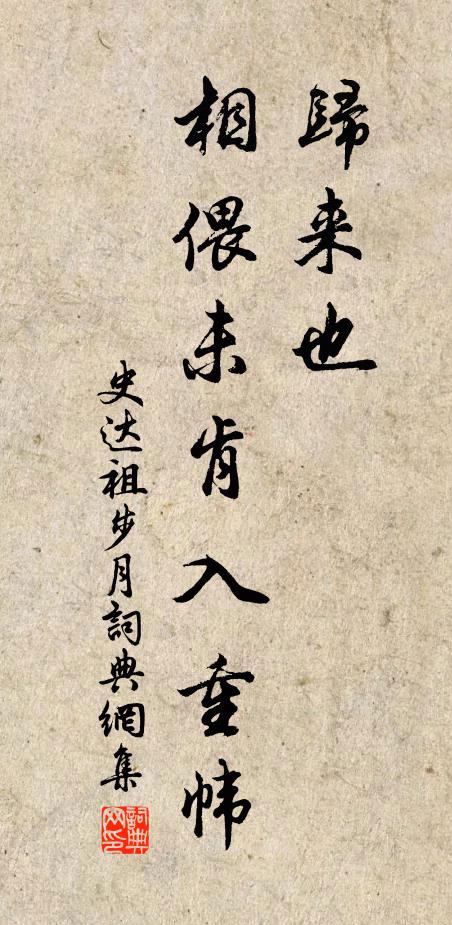 歸来也
相偎未肯入重帏
史达祖步月詞典網集
詞典网印